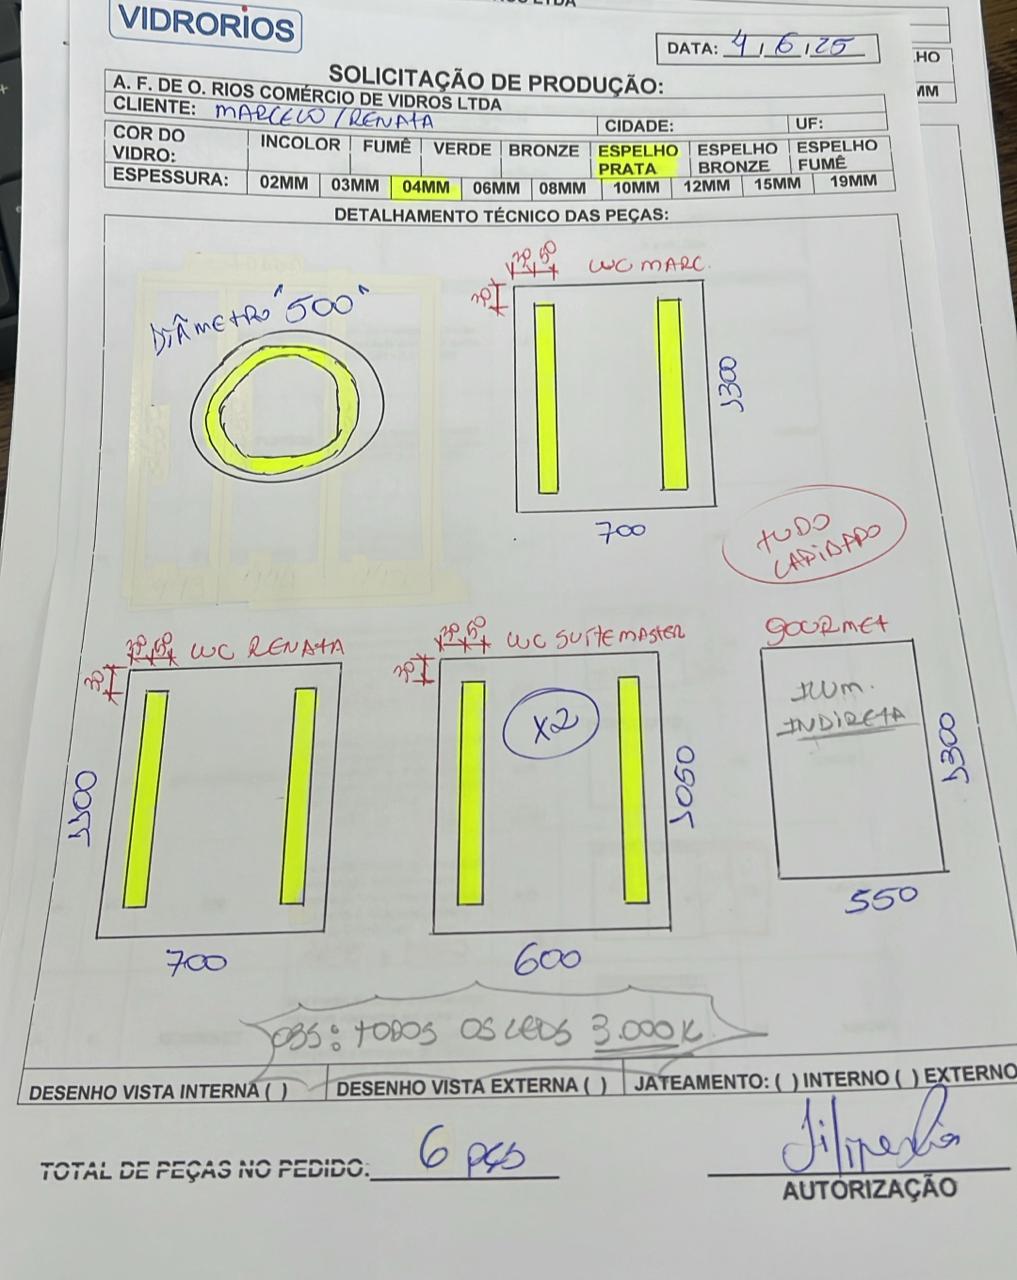 VIDRORIOS
DATA: 4,6,25
SOLICITAÇÃO DE PRODUÇÃO:
A. F. DE O. RIOS COMÉRCIO DE VIDROS LTDA
CLIENTE: MARCELO/RENATA CIDADE: UF:
COR DO VIDRO: INCOLOR FUMÊ VERDE BRONZE ESPELHO PRATA ESPELHO BRONZE ESPELHO FUMÊ
ESPESSURA: 02MM 03MM 04MM 06MM 08MM 10MM 12MM 15MM 19MM
DETALHAMENTO TÉCNICO DAS PEÇAS:
DIÂMETRO "500"
30 50 WC MARC.
30
1300
700
TUDO
LAPIDADO
30 50 WC RENATA
30
1300
700
30 50 WC SUITE MASTER
30
X2
1050
600
GOURMET
ILUM.
INDIRETA
1300
550
OBS: TODOS OS LEDS 3.000K
DESENHO VISTA INTERNA ( ) DESENHO VISTA EXTERNA ( ) JATEAMENTO: ( ) INTERNO ( ) EXTERNO
TOTAL DE PEÇAS NO PEDIDO: 6 pçs
AUTORIZAÇÃO